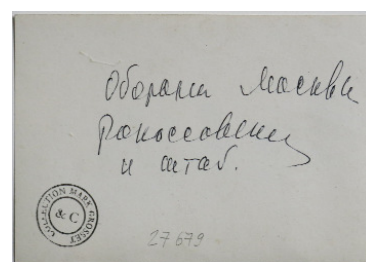 Оборона Москвы
Рокоссовский
и штаб.
COLLECTION MARK GROSSET
& C
27679